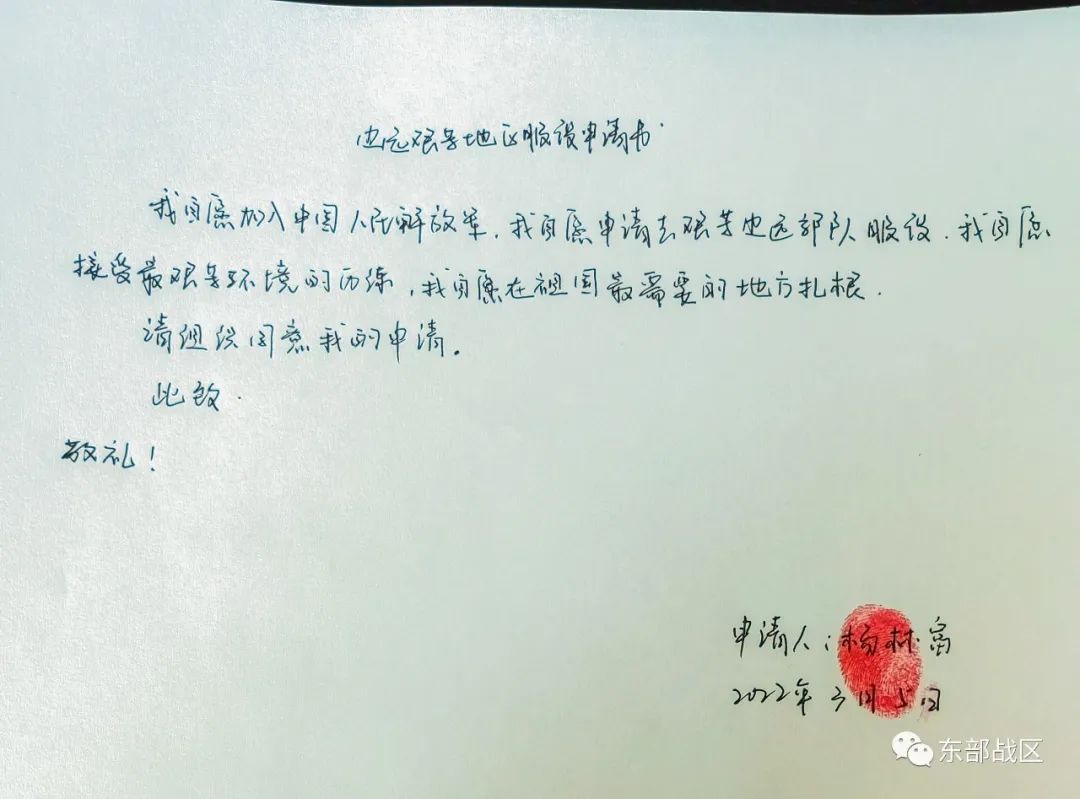 边远艰苦地区服役申请书
我自愿加入中国人民解放军,我自愿申请去艰苦边远部队服役.我自愿
接受最艰苦环境的历练,我自愿在祖国最需要的地方扎根.
请组织同意我的申请。
此致.
敬礼!
申请人:杨林
2022年3月5日
东部战区